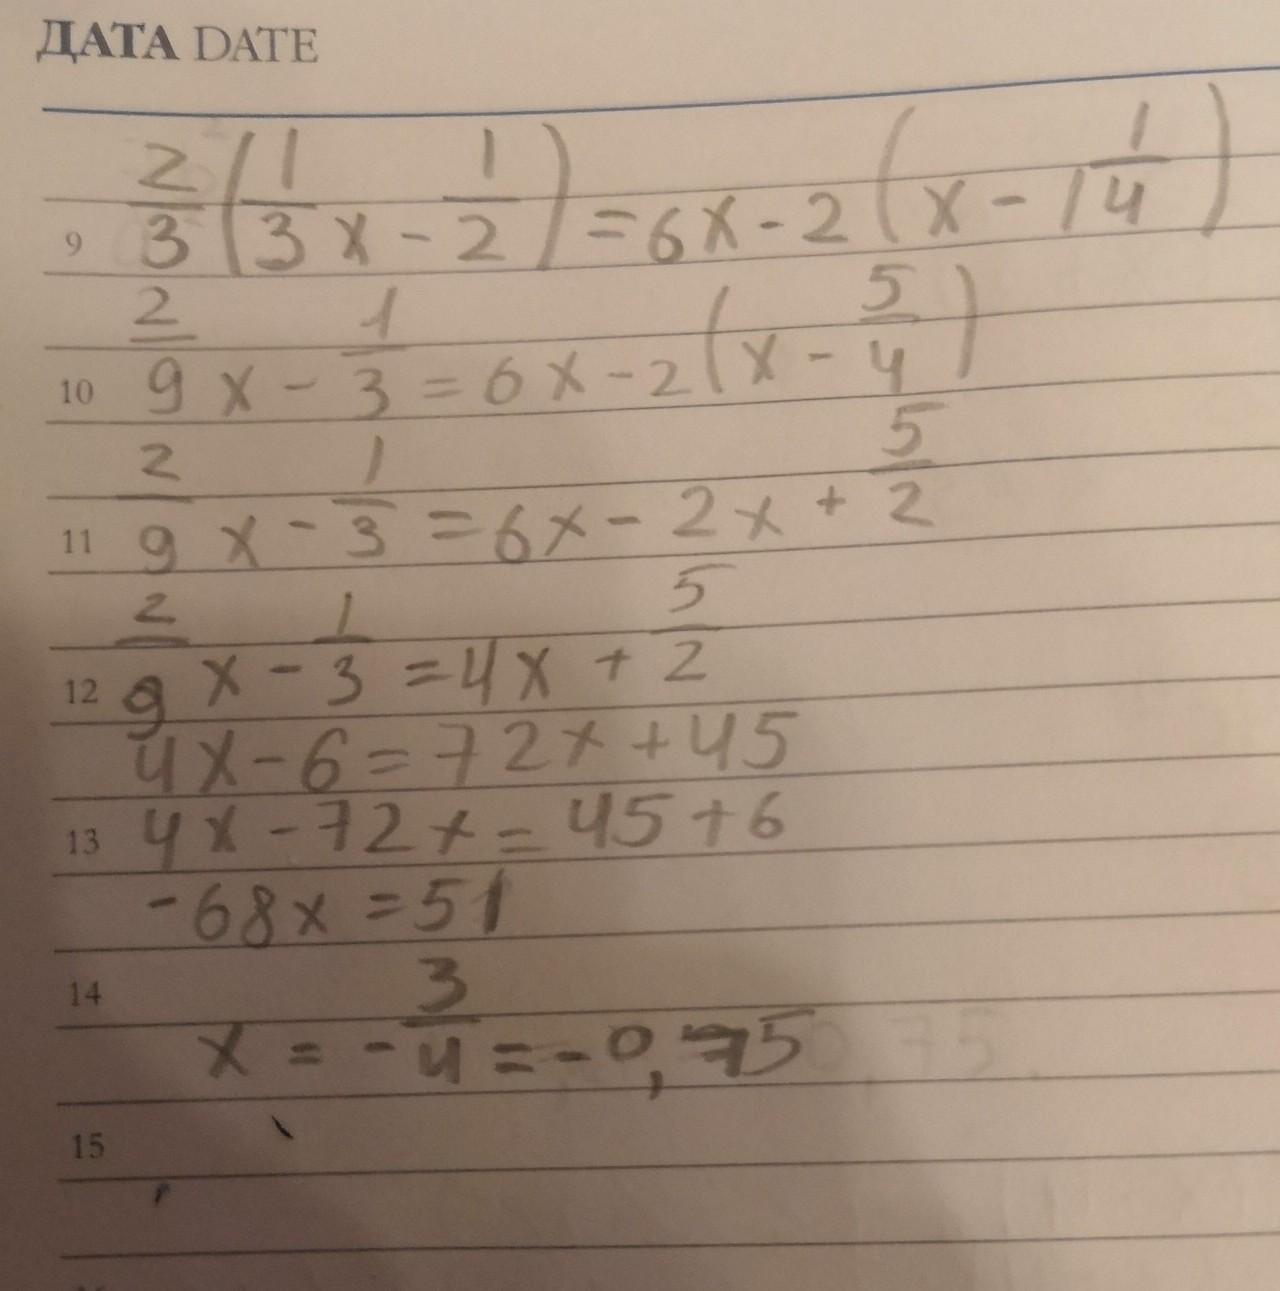 ДАТА DATE
9 2/3 (1/3 x - 1/2) = 6x - 2 (x - 1 1/4)
10 2/9 x - 1/3 = 6x - 2 (x - 5/4)
11 2/9 x - 1/3 = 6x - 2x + 5/2
12 2/9 x - 1/3 = 4x + 5/2
4x - 6 = 72x + 45
13 4x - 72x = 45 + 6
-68x = 51
14
x = - 3/4 = -0,75
15